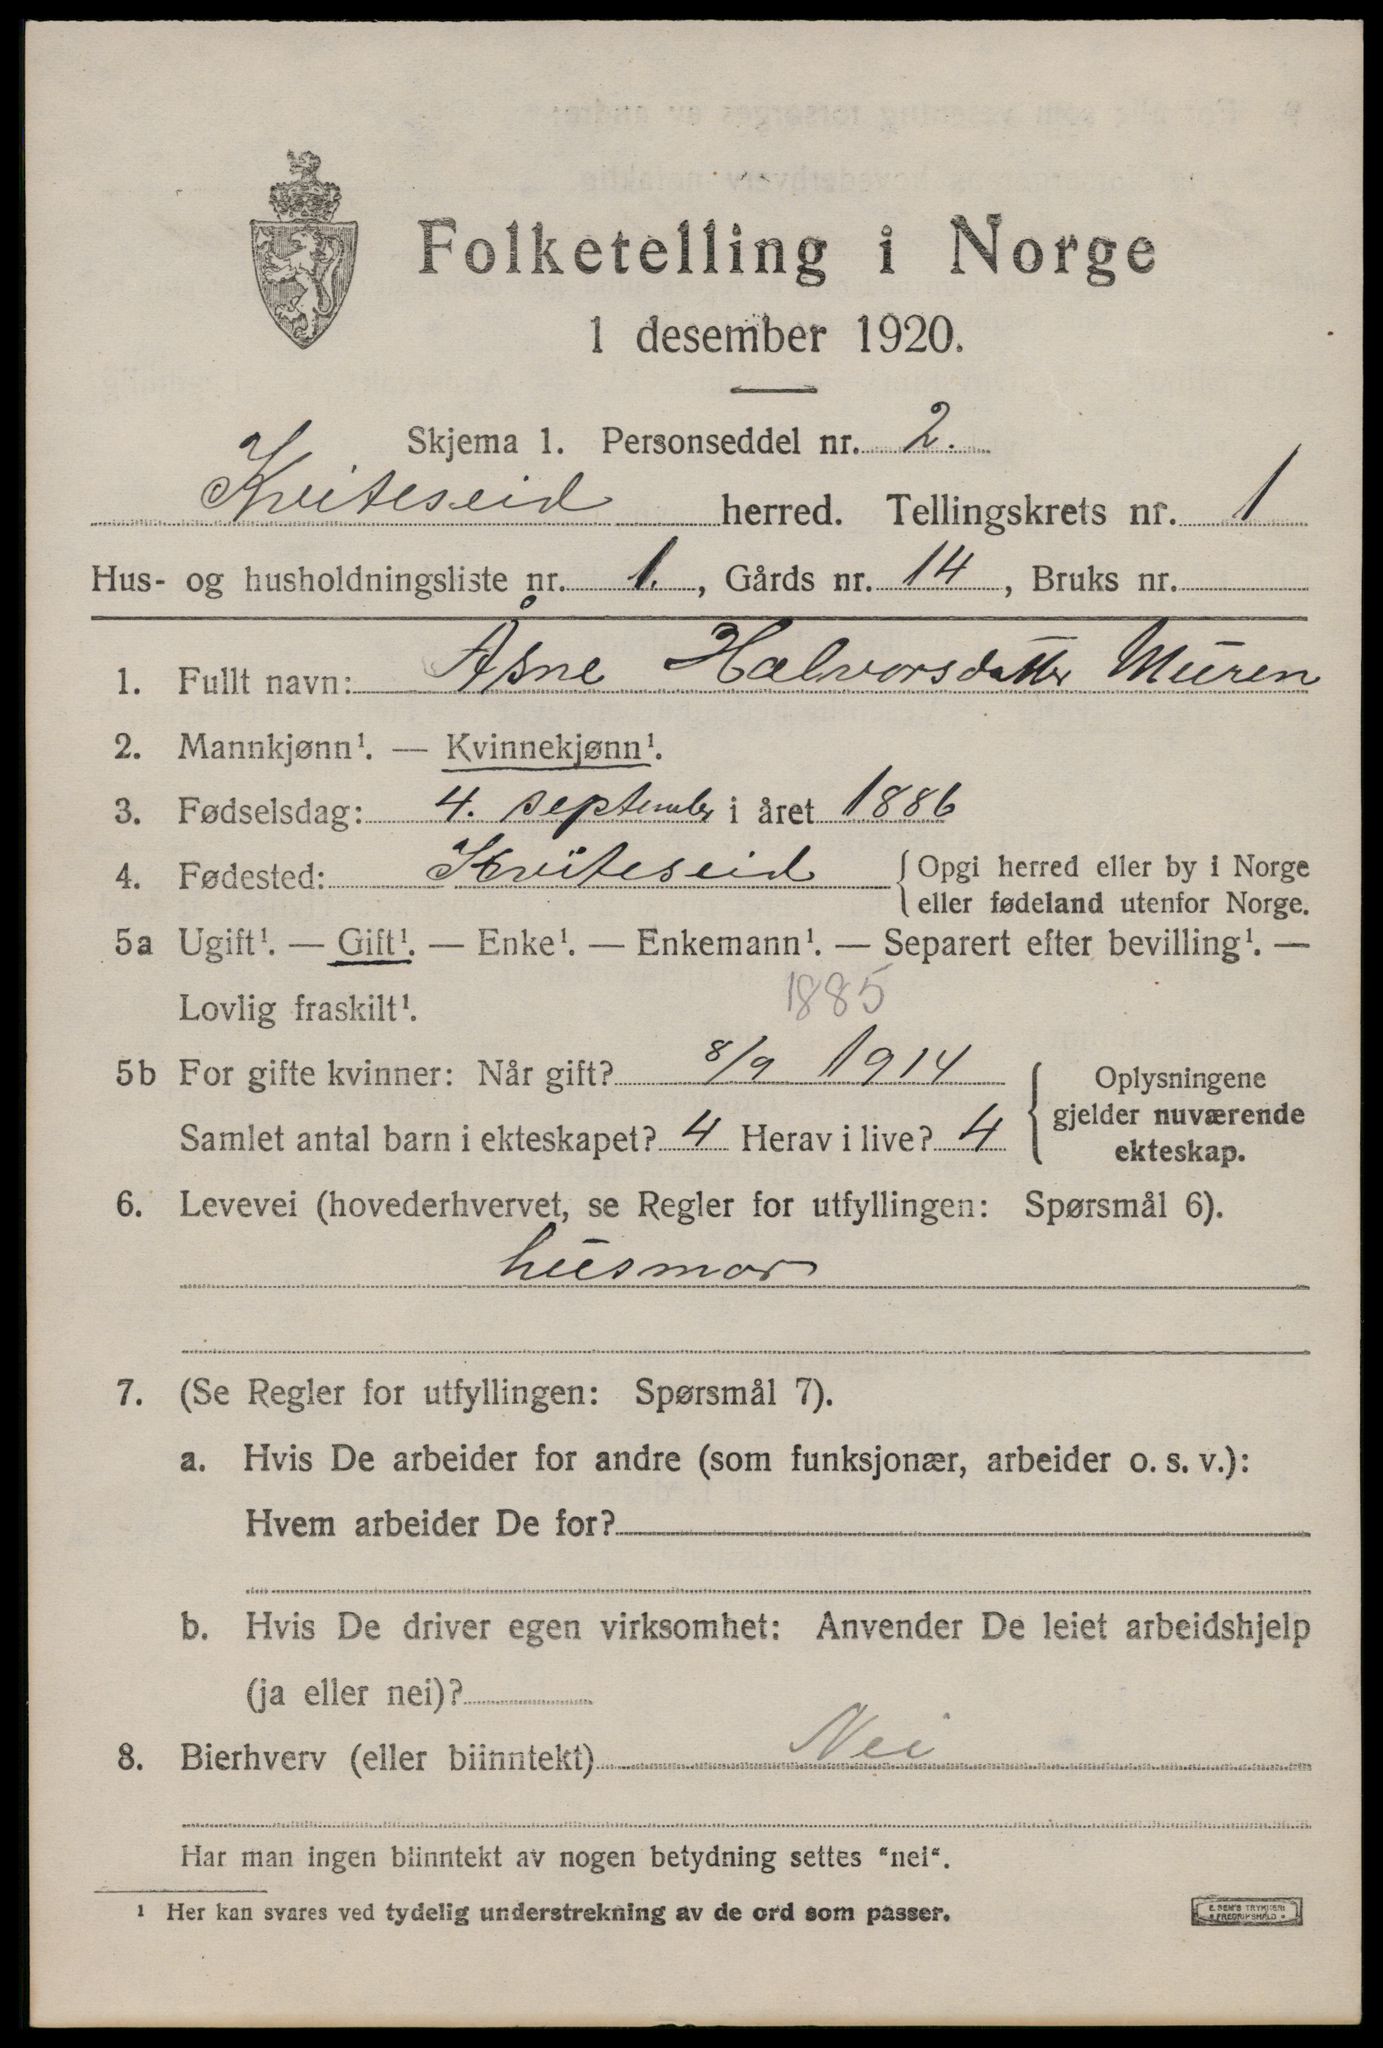 Folketelling i Norge
1 desember 1920.
Skjema 1. Personseddel nr. 2.
Kviteseid herred. Tellingskrets nr. 1
Hus- og husholdningsliste nr. 1. , Gårds nr. 14 , Bruks nr.
1. Fullt navn: Åsne Halvorsdatter Muren
2. Mannkjønn¹. — Kvinnekjønn¹.
3. Fødselsdag: 4. september i året 1886
4. Fødested: Kviteseid { Opgi herred eller by i Norge
eller fødeland utenfor Norge.
5a Ugift¹. — Gift¹. — Enke¹. — Enkemann¹. — Separert efter bevilling¹. —
Lovlig fraskilt¹. 1885
5b For gifte kvinner: Når gift? 8/9 1914
Samlet antal barn i ekteskapet? 4 Herav i live? 4
{ Oplysningene
gjelder nuværende
ekteskap.
6. Levevei (hovederhvervet, se Regler for utfyllingen: Spørsmål 6).
husmor
7. (Se Regler for utfyllingen: Spørsmål 7).
a. Hvis De arbeider for andre (som funksjonær, arbeider o. s. v.):
Hvem arbeider De for?
b. Hvis De driver egen virksomhet: Anvender De leiet arbeidshjelp
(ja eller nei)?
8. Bierhverv (eller biinntekt) Nei
Har man ingen biinntekt av nogen betydning settes "nei".
¹ Her kan svares ved tydelig understrekning av de ord som passer.
E. SEM'S TRYKKERI
FREDRIKSHALD